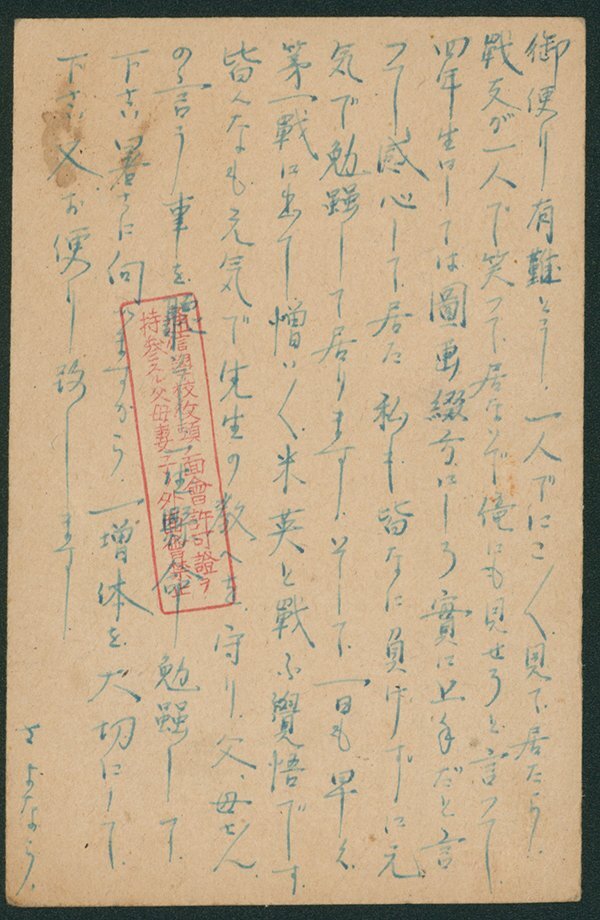 御便り有難とう、一人でにこ〳〵見て居たら、
戦友が一人で笑つて居ないで俺にも見せろと言つて
四年生にしては圖画綴方にしろ實に上手だと言
つて感心して居た 私も皆なに負けずに元
気で勉强して居ります、そして一日も早く
第一戰に出て憎い〳〵米英と戰ふ覺悟です
皆んなも元気で先生の教へを守り、父、母さん
の言う事を 一生懸命 勉强して
下さい 暑さに向ひますから、一増体を大切にして
下さい 又お便り致します
さよなら、
通信學校校頭面會許可證ヲ
持参スル父母妻子ノ外